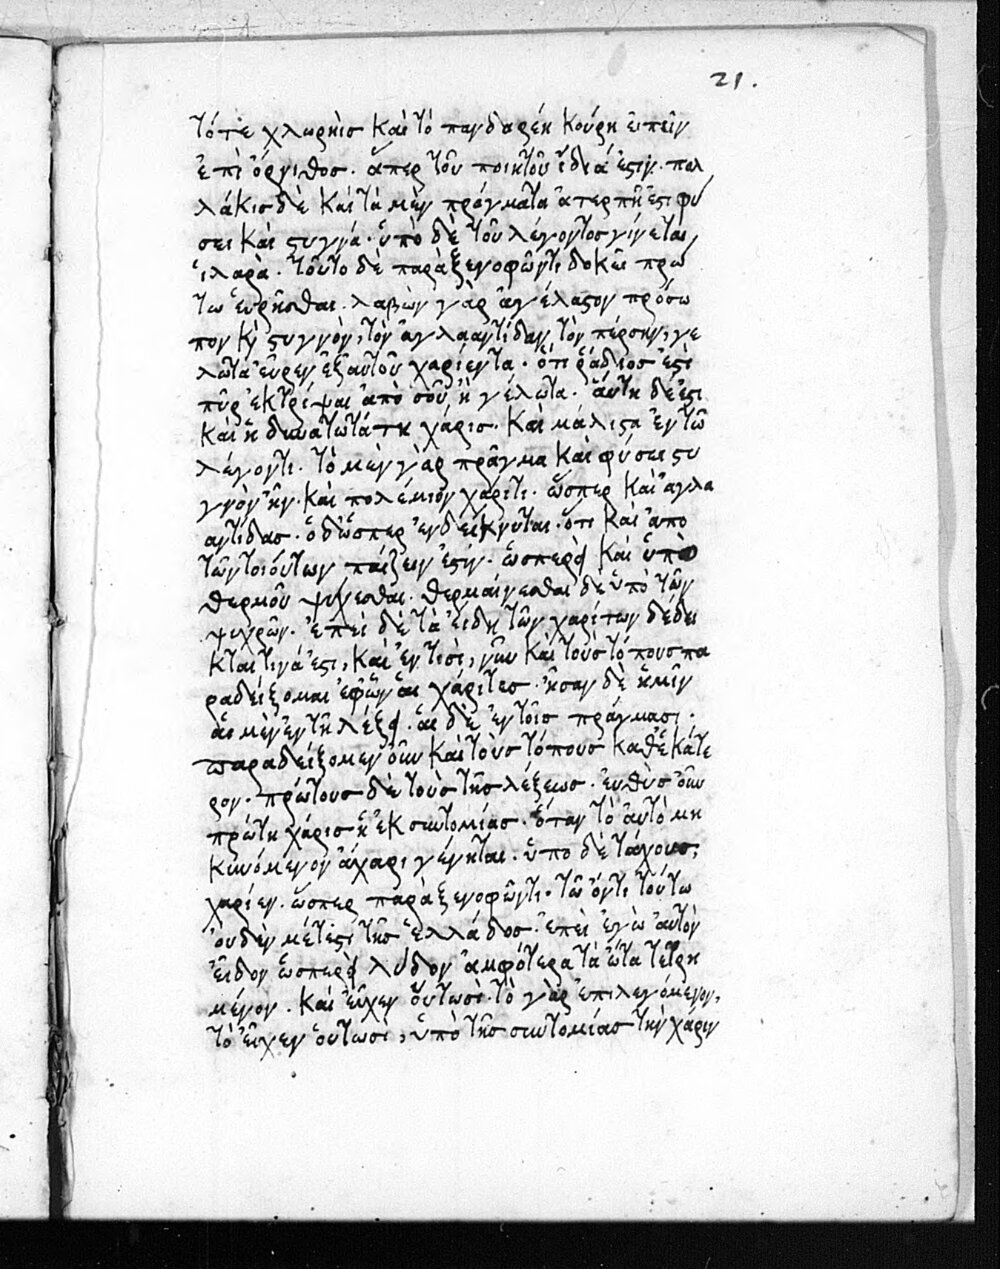 21.
τότε χλωρηὶσ καὶ τὸ πανδαρέη κούρη εἰπεῖν
ἐπὶ ὄρνιθοσ. ἅπερ τοῦ ποιητοῦ ἴδιά ἐστιν. πολ
λάκισ δὲ καὶ τὰ μὲν πράγματα ἀτερπῆ ἐστι φύ
σει καὶ στυγνά. ὑπὸ δὲ τοῦ λέγοντοσ γίνεται
ἱλαρὰ. τοῦτο δὲ παρὰ ξενοφῶντι δοκεῖ πρώ
τω εὑρῆσθαι. λαβὼν γὰρ ἀγέλαστον πρόσω
πον κὶ στυγνὸν, τὸν ἀγλααντίδαν τὸν πέρσην, γέ
λωτα εὗρεν ἐξ αὐτοῦ χαρίεντα. ὅτι ῥάδιόσ ἐστι
πῦρ ἐκτρίψαι ἀπὸ σοῦ ἢ γέλωτα. αὕτη δέ ἐστι
καὶ ἡ δυνατωτάτη χάρισ. καὶ μάλιστα ἐν τῶ
λέγοντι. τὸ μὲν γὰρ πρᾶγμα καὶ φύσει στυ
γνὸν ἦν. καὶ πολέμιον χάριτι. ὥσπερ καὶ ἀγλα
αντίδασ. ὁ δ' ὥσπερ ἐνδείκνυται. ὅτι καὶ ἀπὸ
τῶν τοιούτων παίζειν ἐστίν. ὡσπερεὶ καὶ ὑπὸ
θερμοῦ ψύχεσθαι. θερμαίνεσθαι δὲ ὑπὸ τῶν
ψυχρῶν. ἐπεὶ δὲ τὰ εἴδη τῶν χαρίτων δέδει
κται τινά ἐστι, καὶ ἐν τισὶ, νῦν καὶ τοὺσ τόπουσ πα
ραδείξομαι ἐφ' ὧν αἱ χάριτεσ. ἦσαν δὲ ἡμῖν
αἱ μὲν ἐν τῆ λέξει. αἱ δὲ ἐν τοῖσ πράγμασι.
παραδείξομεν οὖν καὶ τοὺσ τόπουσ καθ' ἑκάτε
ρον. πρώτουσ δὲ τοὺσ τῆσ λέξεωσ. εὐθὺσ οὖν
πρώτη χάρισ ἡ ἐκ συντομίασ. ὅταν τὸ αὐτὸ μη
κυνόμενον ἄχαρι γένηται. ὑπὸ δὲ τάχουσ,
χαρίεν. ὥσπερ παρὰ ξενοφῶντι. τῶ ὄντι τούτω
οὐδὲν μέτεστι τῆσ ἑλλάδοσ. ἐπεὶ ἐγὼ αὐτὸν
εἶδον ὡσπερεὶ λύδον ἀμφότερα τὰ ὦτα τετρη
μένον. καὶ εἶχεν οὕτωσὶ. τὸ γὰρ ἐπιλεγόμενον,
τὸ εἶχεν οὑτωσὶ, ὑπὸ τῆσ συντομίασ τὴν χάριν